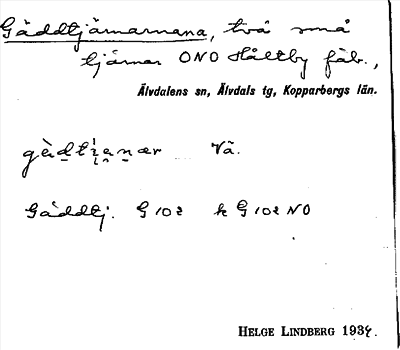 Gäddtjärnarnana, två små
tjärnar ONO Håltby fäb.,
Älvdalens sn, Älvdals tg, Kopparbergs län.
Vä.
Gäddtj. G 102 k G 102 NO
HELGE LINDBERG 1934.